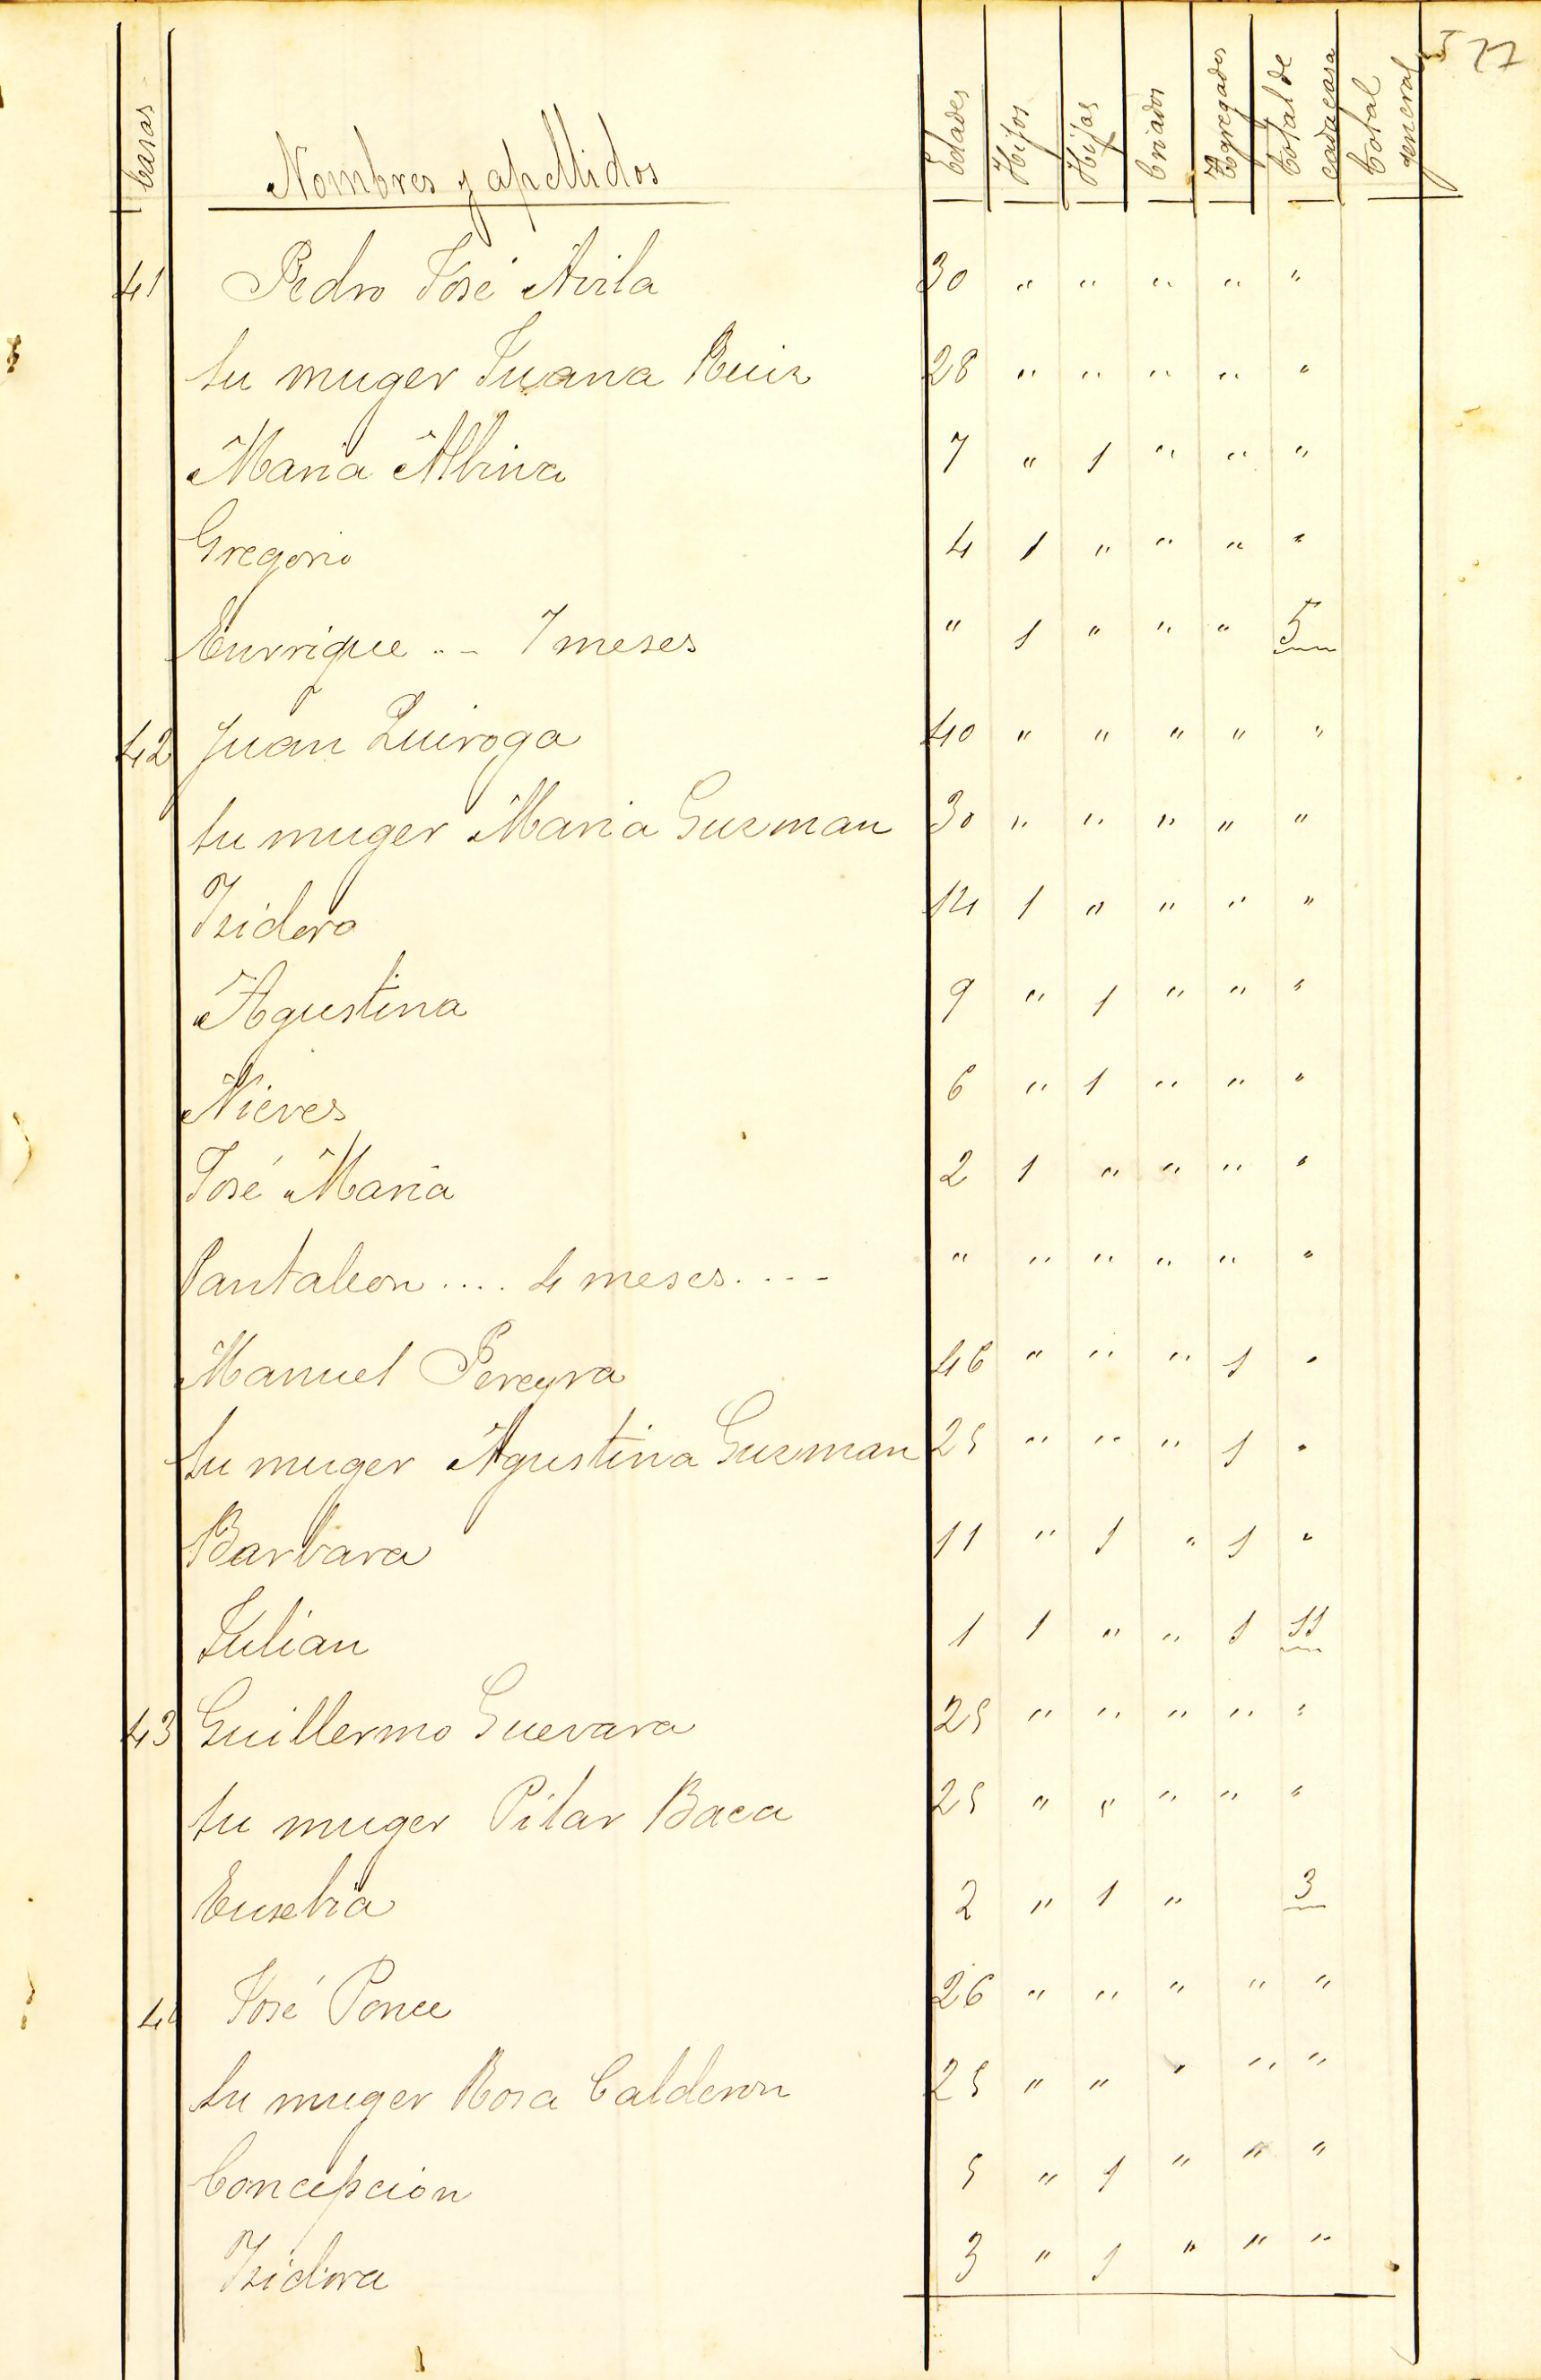 77
Casas Nombres y apellidos Edades Hijos Hijas Criados Agregados Total de cada casa Total general
41 Pedro José Avila 30 " " " " "
su muger Juana Ruiz 28 " " " " "
Maria Albina 7 " 1 " " "
Gregorio 4 1 " " " "
Enrrique .. - 7 meses " 1 " " " 5
42 Juan Quiroga 40 " " " " "
su muger Maria Guzman 30 " " " " "
Izidoro 14 1 " " " "
Agustina 9 " 1 " " "
Nieves 6 " 1 " " "
José Maria 2 1 " " " "
Pantaleon .... 4 meses.... " " " " " "
Manuel Pereyra 46 " " " 1 "
su muger Agustina Guzman 25 " " " 1 "
Barbara 11 " 1 " 1 "
Julian 1 1 " " 1 11
43 Guillermo Guevara 25 " " " " "
su muger Pilar Baca 25 " " " " "
Eusebia 2 " 1 " 3
José Ponce 26 " " " " "
su muger Rosa Calderon 25 " " " " "
Concepcion 5 " 1 " " "
Izidora 3 " 1 " " "